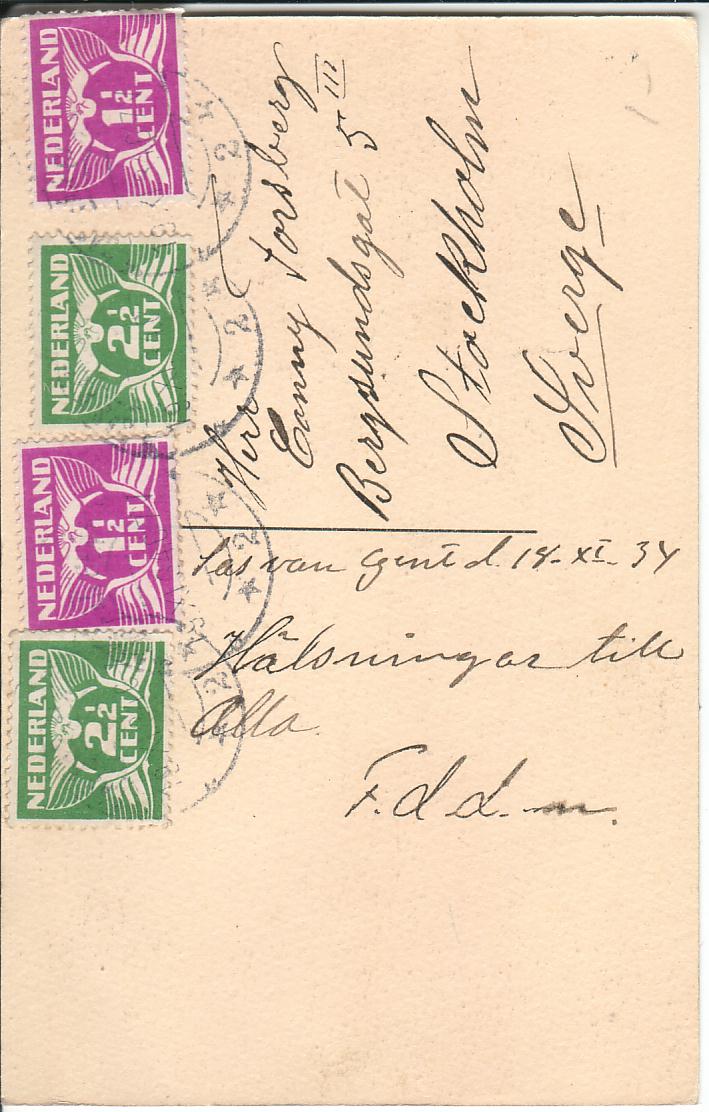 NEDERLAND
1½
CENT
NEDERLAND
2½
CENT
NEDERLAND
1½
CENT
NEDERLAND
2½
CENT
Herr
Conny Forsberg
Bergsundsgat 5 III
Stockholm
Sverge
Sas van Gent d. 18-XI-34
Hälsningar till
Alla.
F. d d. m.